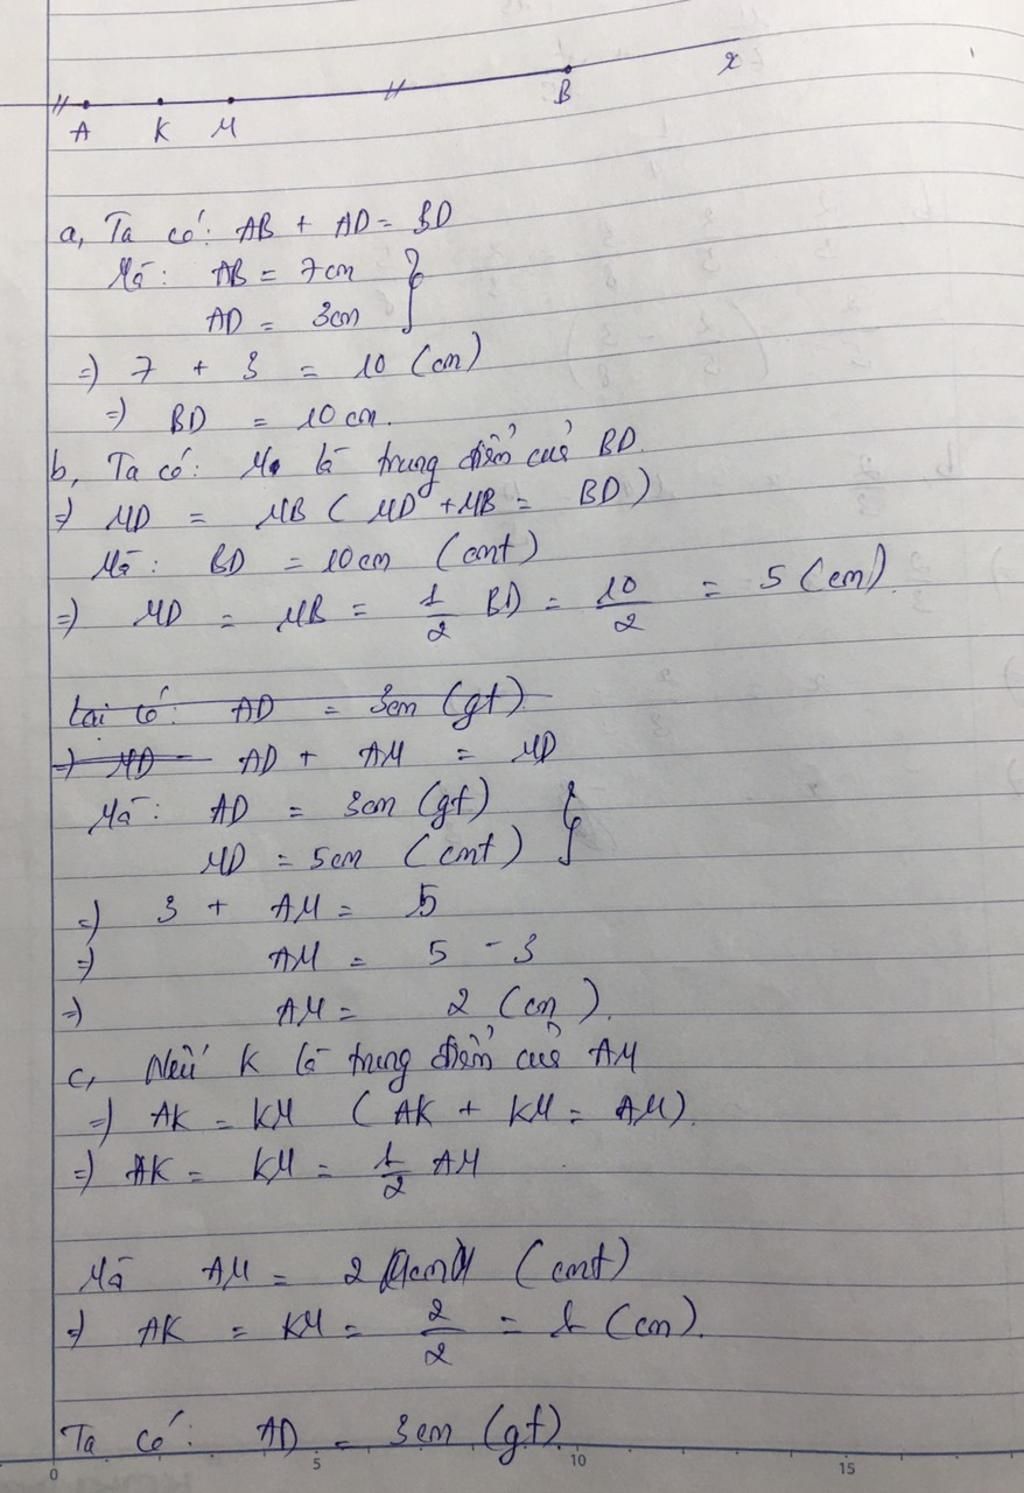 A K M B x
a, Ta có: AB + AD = BD
Mà: AB = 7cm
AD = 3cm
=) 7 + 3 = 10 (cm)
=) BD = 10 cm.
b, Ta có: M là trung điểm của BD.
=) MD = MB ( MD + MB = BD )
Mà: BD = 10cm (cmt)
=) MD = MB = 1/2 BD = 10/2 = 5 (cm)
Lại có: AD = 3cm (gt)
=) MD AD + AM = MD
Mà: AD = 3cm (gt)
MD = 5cm (cmt)
=) 3 + AM = 5
=) AM = 5 - 3
=) AM = 2 (cm).
c, Nếu K là trung điểm của AM
=) AK = KM ( AK + KM = AM).
=) AK = KM = 1/2 AM
Mà AM = 2 (cm) (cmt)
=) AK = KM = 2/2 = 1 (cm).
Ta có: AD = 3cm (gt)
0 5 10 15